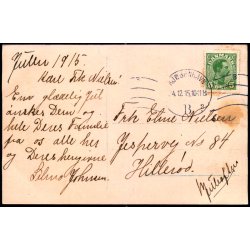 Julen 1915.
Kære Frk Nielsen
En glædelig Jul
ønskes Dem og
hele Deres Familie
fra os alle her
og Deres hengivne
Johnsen.
Frk Eline Nielsen
Jespervej 84
Hillerød.
4.12.15.10-11
B.